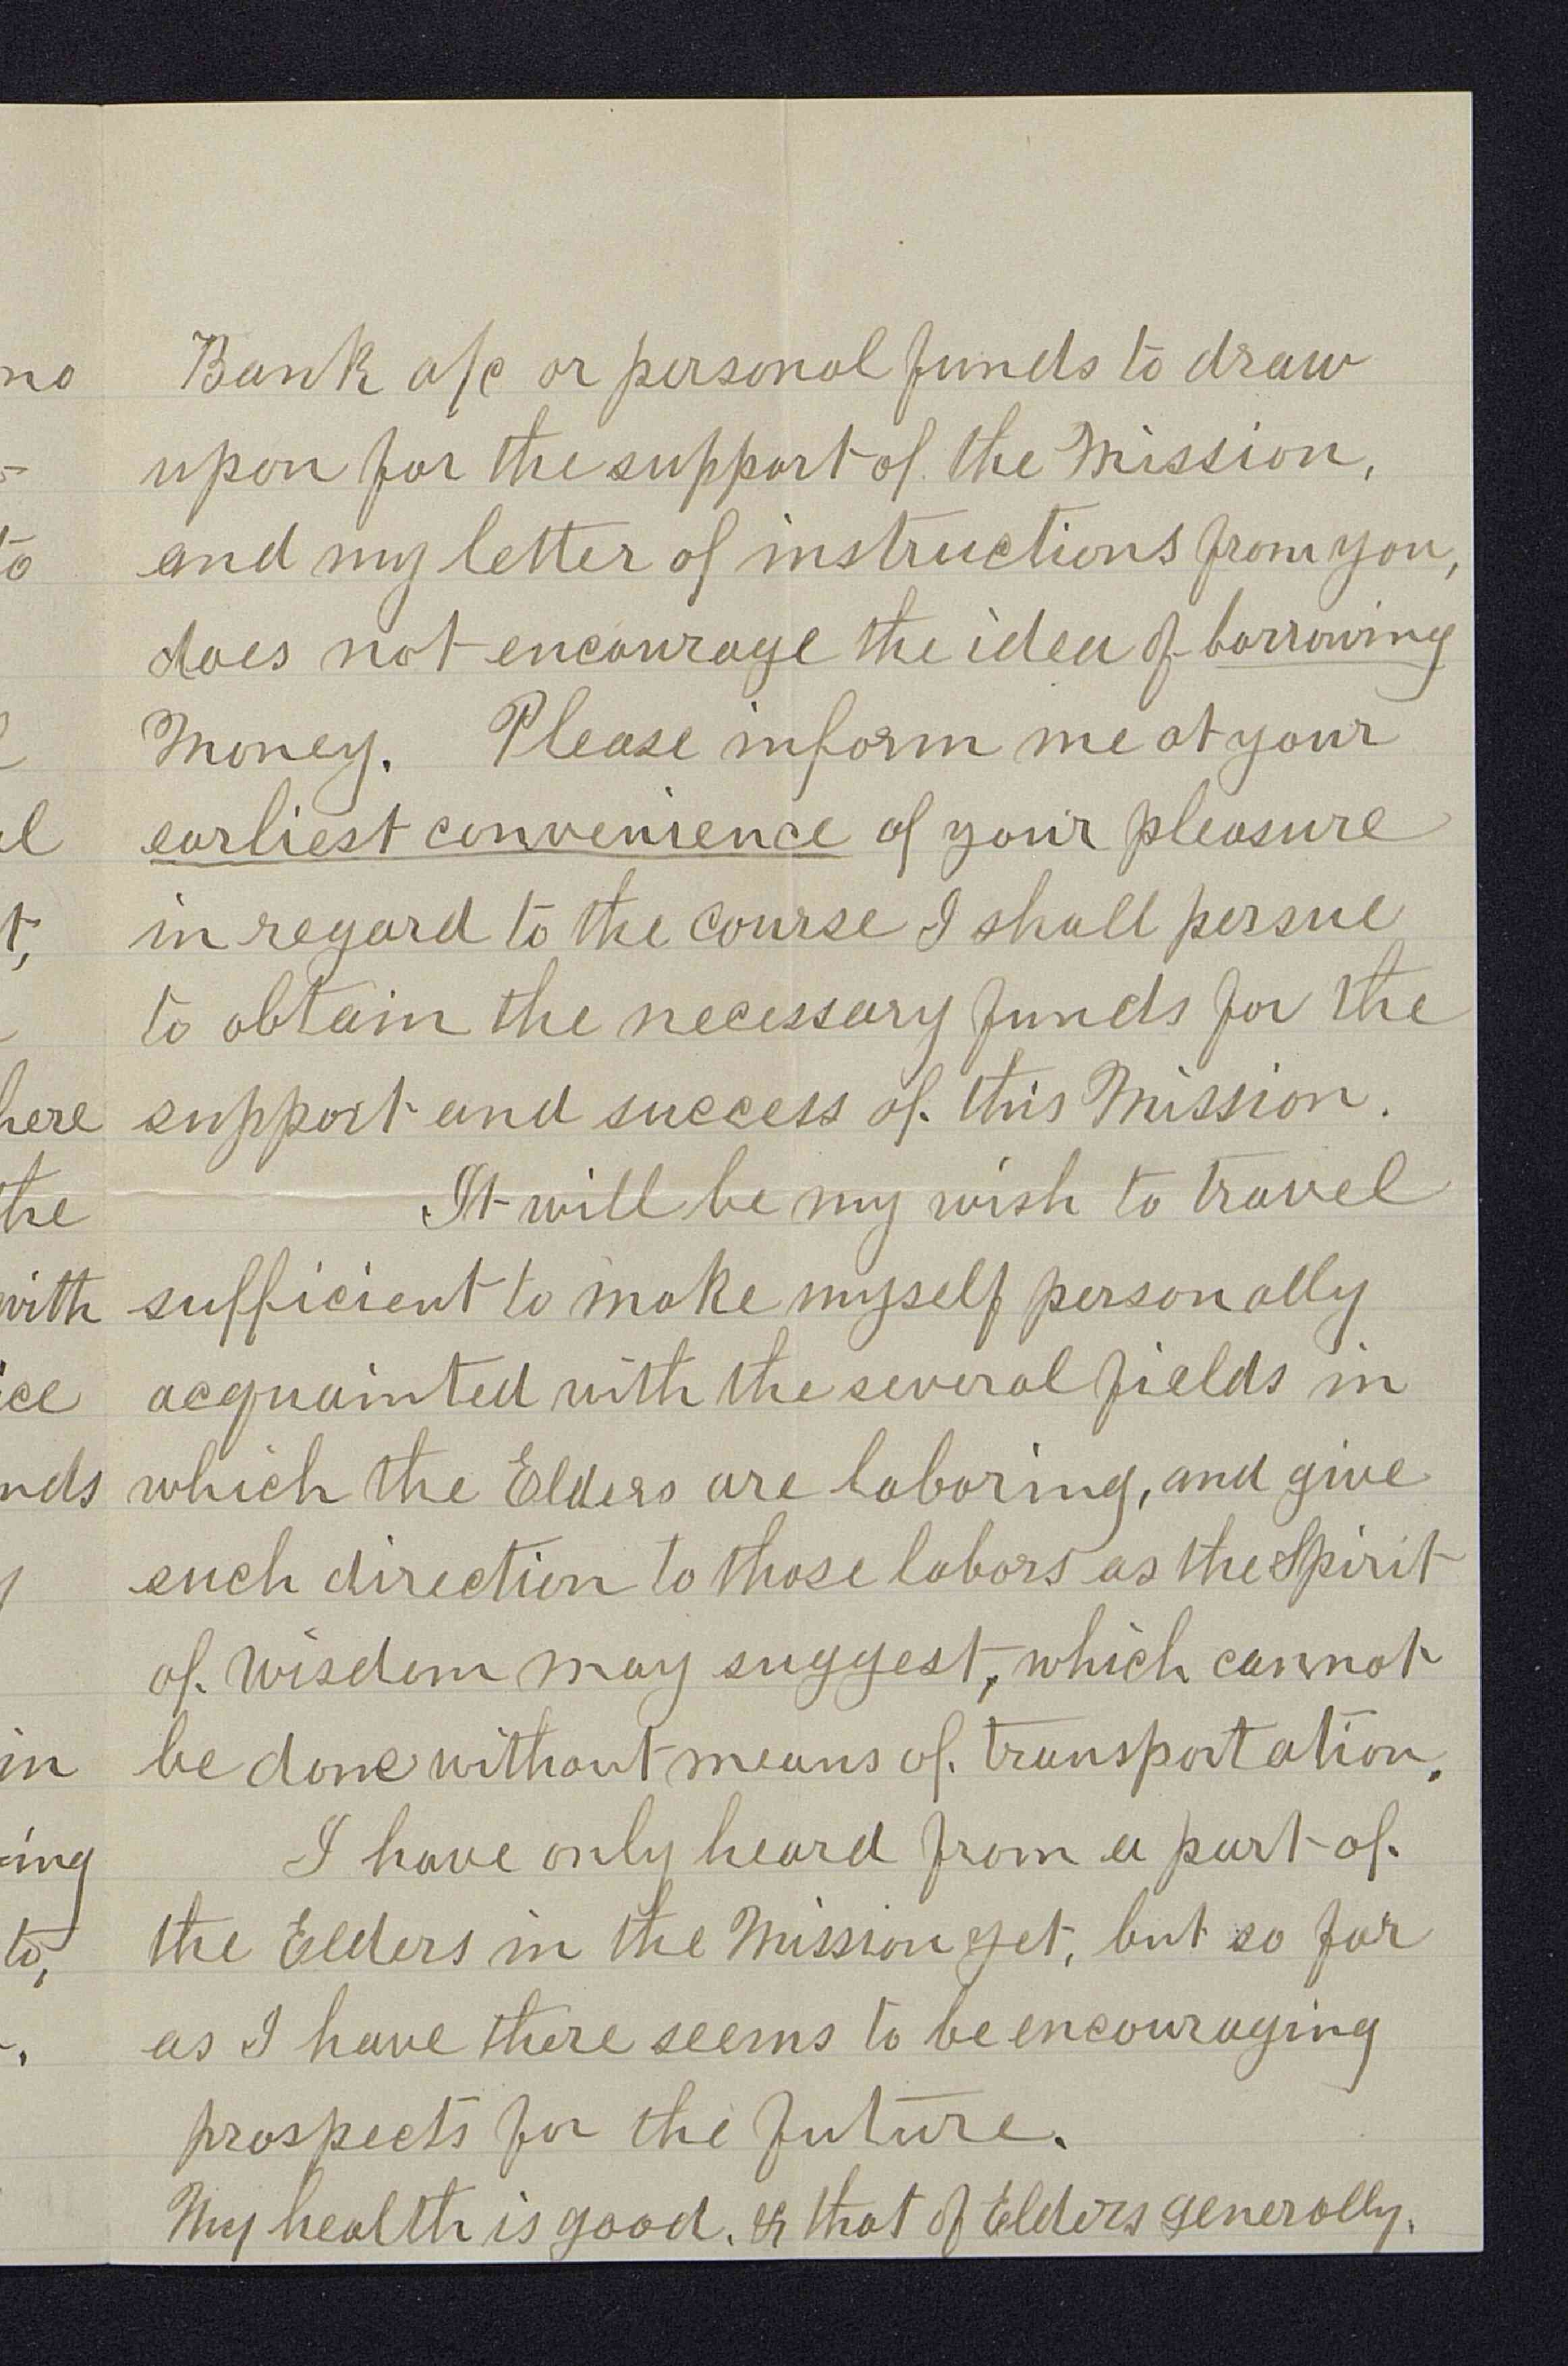 Bank a/c or personal funds to draw
upon for the support of the Mission,
and my letter of instructions from you,
does not encourage the idea of borrowing
Money. Please inform me at your
earliest convenience of your pleasure
in regard to the course I shall persue
to obtain the necessary funds for the
support and success of this Mission.
It will be my wish to travel
sufficient to make myself personally
acquainted with the several fields in
which the Elders are laboring, and give
such direction to those labors as the Spirit
of wisdom may suggest, which cannot
be done without means of transportation.
I have only heard from a part of
the Elders in the Mission yet, but so far
as I have there seems to be encouraging
prospects for the future.
My health is good. & that of Elders generally.
no
to
al
t,
here
the
with
ice
nds
in
ing
to,